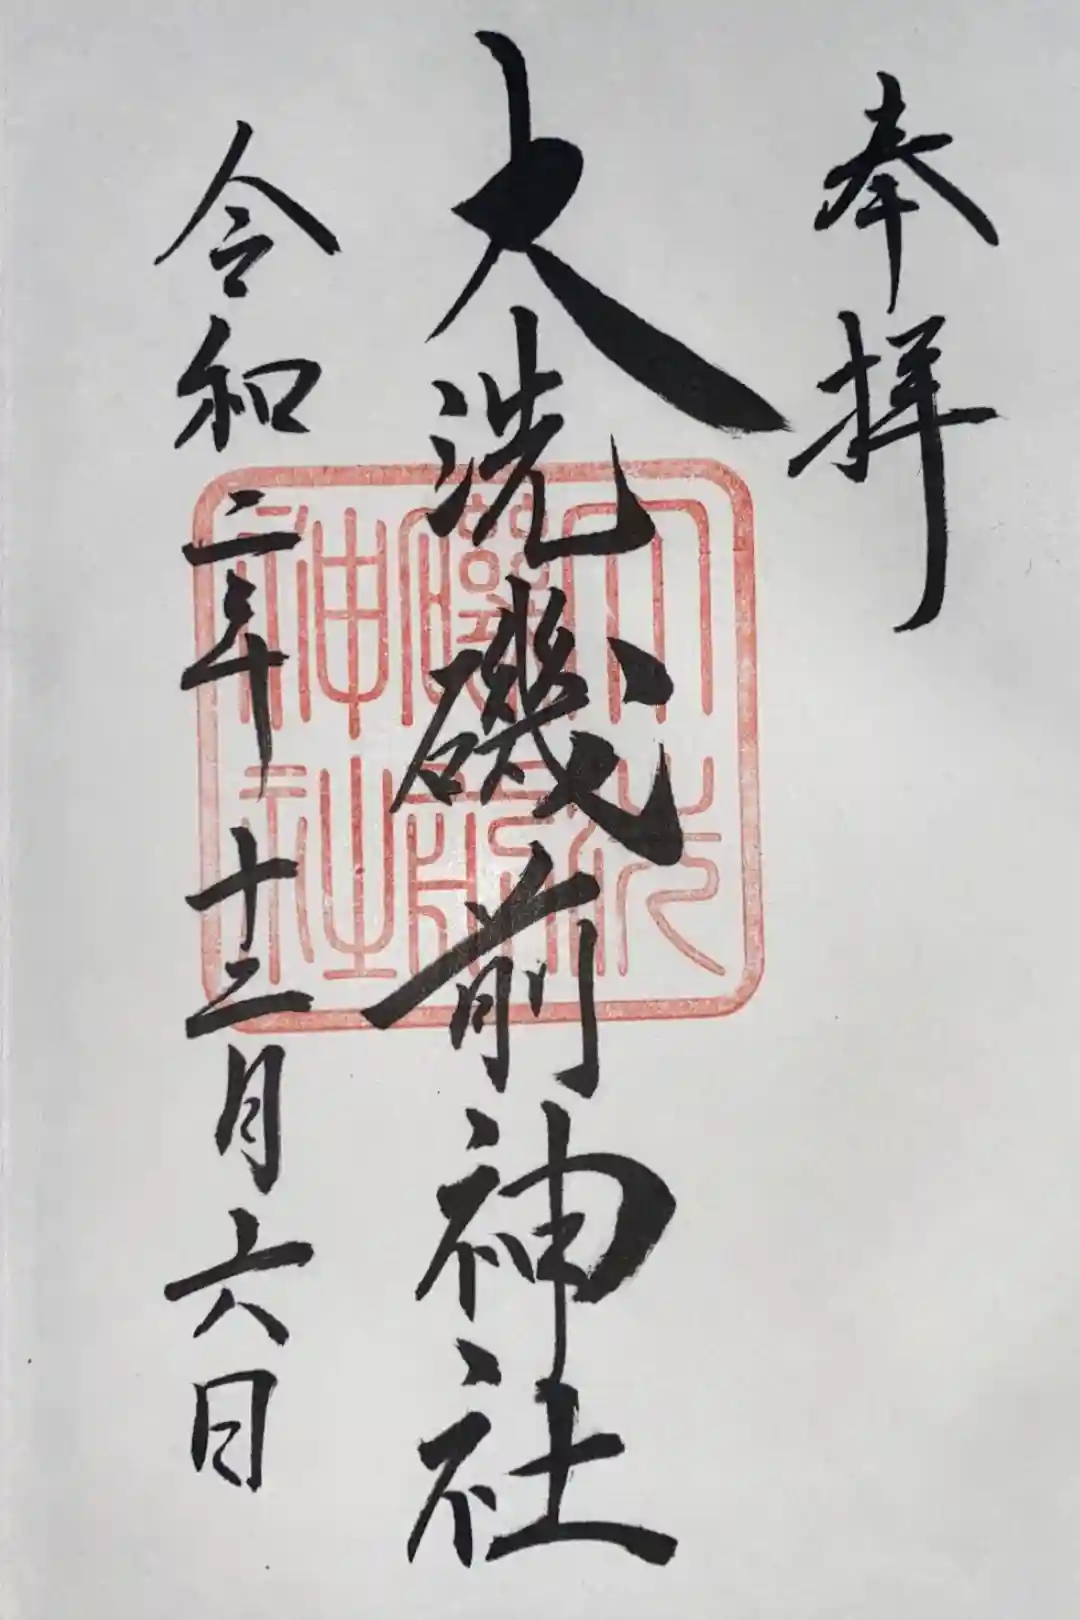 奉拝
大洗磯前神社
大洗磯前神社
令和二年十二月六日